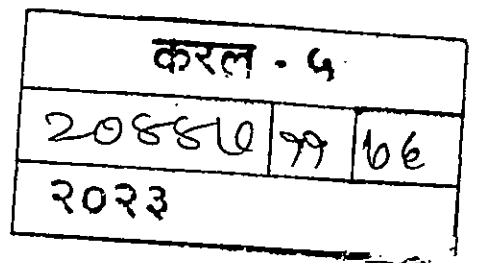 करल - ५
२०४४७ ११ ७६
२०२३